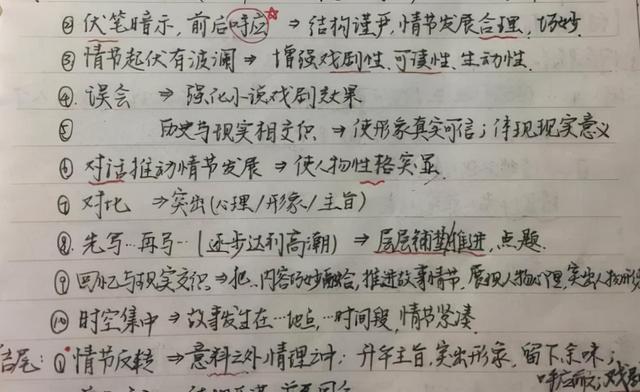 ② 伏笔暗示，前后呼应 ⇒ 结构谨严，情节发展合理，巧妙
③ 情节起伏有波澜 ⇒ 增强戏剧性、可读性、生动性
④ 误会 ⇒ 强化小说戏剧效果
⑤ 历史与现实相交织 ⇒ 使形象真实可信；体现现实意义
⑥ 对话推动情节发展 ⇒ 使人物性格突显
⑦ 对比 ⇒ 突出(心理/形象/主旨)
⑧ 先写…再写…(逐步达到高潮) ⇒ 层层铺垫推进，点题
⑨ 回忆与现实交织 ⇒ 把…内容巧妙融合，推进故事情节，展现人物心理，突出人物形
⑩ 时空集中 ⇒ 故事发生在…地点，…时间段，情节紧凑
结尾：① 情节反转 ⇒ 意料之外情理之中：升华主旨，突出形象，留下余味；
呼应前文；